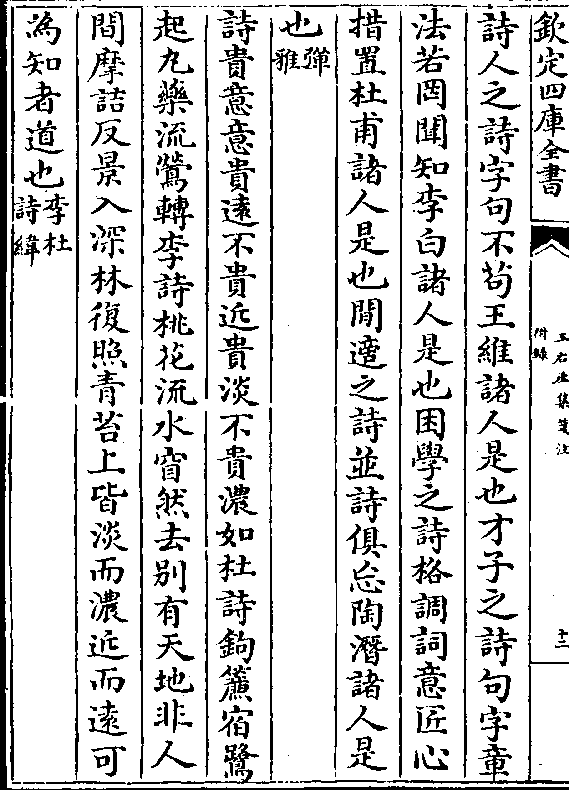 欽定四庫全書
王右丞集箋注
附錄
十二
詩人之詩字句不苟王維諸人是也才子之詩句字章
法若罔聞知李白諸人是也困學之詩格調詞意匠心
措置杜甫諸人是也閒適之詩並詩俱忘陶潛諸人是
也彈雅
詩貴意意貴遠不貴近貴淡不貴濃如杜詩鉤簾宿鷺
起丸藥流鶯轉李詩桃花流水窅然去別有天地非人
間摩詰反景入深林復照青苔上皆淡而濃近而遠可
為知者道也李杜詩緯